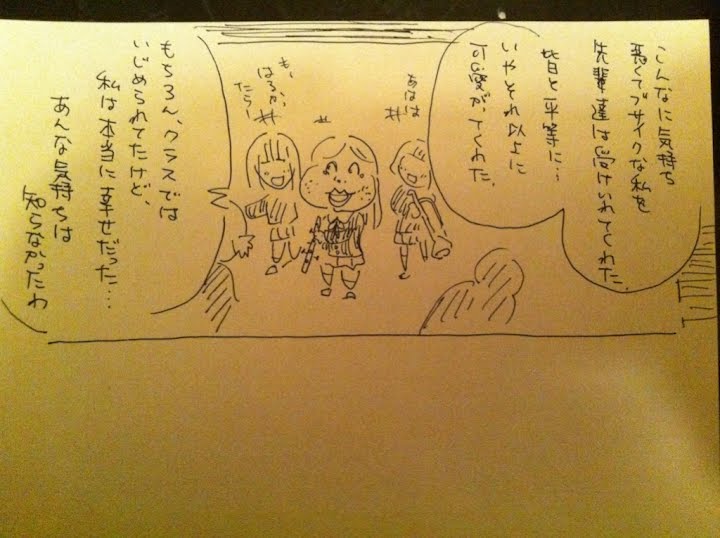 こんなに気持ち
悪くてブサイクな私を
先輩達は受けいれてくれた。
皆と平等に…
いやそれ以上に
可愛がってくれた。
あはは
も、
はるか、
たらー
もちろん、クラスでは
いじめられてたけど、
私は本当に幸せだった…
あんな気持ちは
知らなかったわ